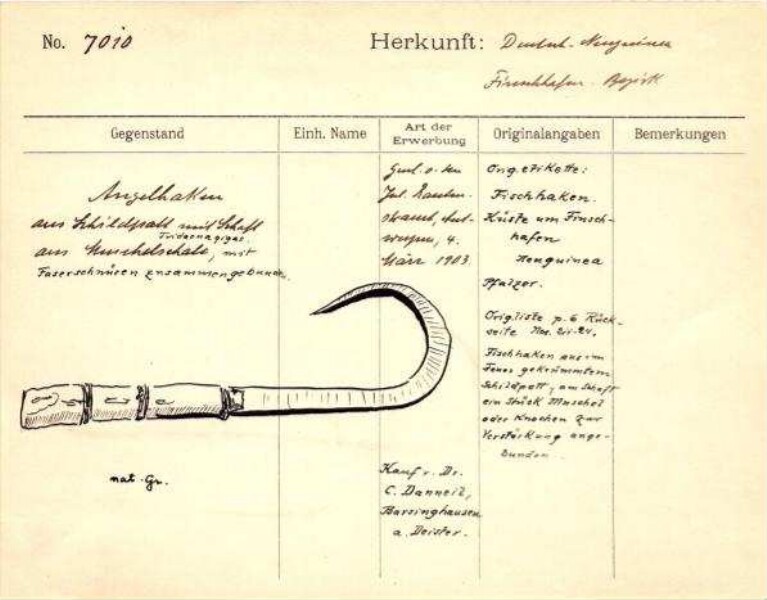 No. 7010
Herkunft: Deutsch-Neuguinea
Finschhafen-Bezirk
Gegenstand
Einh. Name
Art der
Erwerbung
Originalangaben
Bemerkungen
Angelhaken
aus Schildpatt mit Schaft
Tridacna gigas
aus Muschelschale, mit
Faserschnüren zusammengebunden.
März 1903.
Kauf v. Dr.
C. Danneil,
Barsinghausen
a. Deister.
Orig. etikette:
Fischhaken.
Küste um Finsch-
hafen
Neuguinea
Pfalzer.
Orig. liste p. 6 Rück-
seite Nos.
Fischhaken aus im
Feuer gekrümmtem
Schildpatt, am Schaft
ein Stück Muschel
oder Knochen zur
Verstärkung ange-
bunden
nat. Gr.